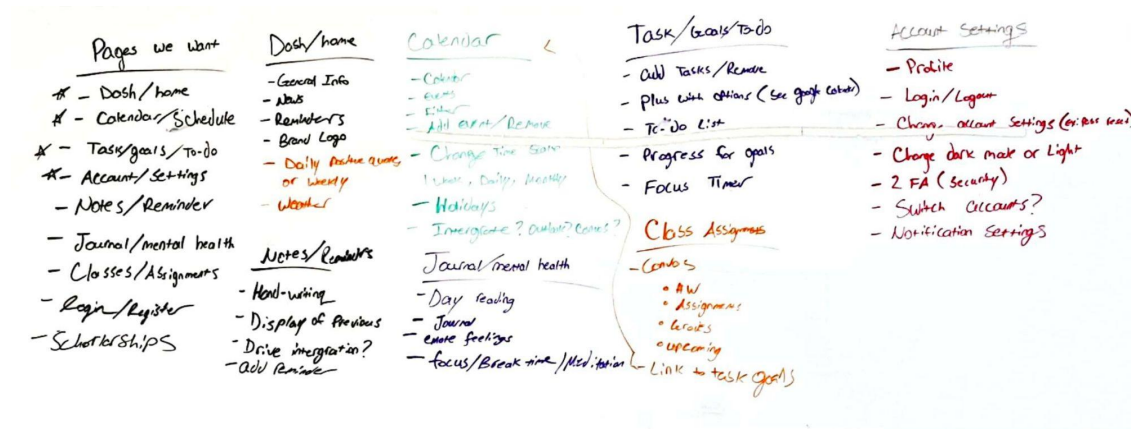 Pages we want
* - Dosh/home
* - Calendar/Schedule
* - Task/goals/To-do
* - Account/Settings
- Notes/Reminder
- Journal/mental health
- Classes/Assignments
- Login/Register
- Schorlarships
Dosh/home
- General Info
- News
- Reminders
- Brand Logo
- Daily Positive quotes
or weekly
- Weather
Notes/Reminders
- Hand-writing
- Display of Previous
- Drive intergration?
- add Reminder
Calendar
- Calendar
- events
- Filter
- Add event/Remove
- Change Time
Week, Daily, Monthly
- Holidays
- Intergrate? Outlook? Canvas?
Journal/mental health
- Day reading
- Journal
- emote feelings
- focus/Break time/Meditation
Task/Goals/To-do
- add Tasks/Remove
- Plus with options (see google
- To-Do List
- Progress for goals
- Focus Timer
Class Assignments
- Canvas
• HW
• Assignments
•
• upcoming
- Link to task goals
Account Settings
- Profile
- Login/Logout
- Change account settings (ex: Pass
- Change dark mode or Light
- 2 FA (Security)
- Switch accounts?
- Notification Settings